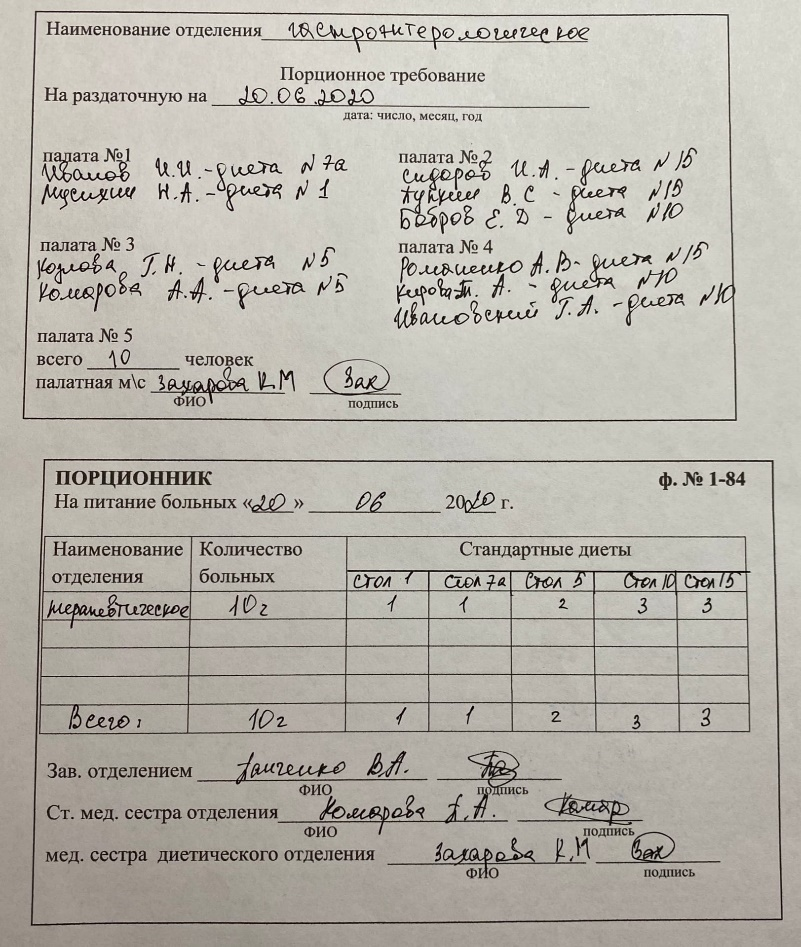 Наименование отделения гастроэнтерологическое
Порционное требование
На раздаточную на 20.06.2020
дата: число, месяц, год
палата №1
Иванов И.И.-диета N 7а
Мусихин Н.А.-диета N 1
палата № 2
Сидоров И.А.-диета N 15
Пупкин В.С - диета N15
Бобров Е.Д - диета N10
палата № 3
Козлова Г.Н. -диета N5
Комарова А.А. -диета N5
палата № 4
Романенко А.В-диета N15
Кирова Т. А. - диета N10
Ивановский Г.А. -диета N10
палата № 5
всего 10 человек
палатная м\с Захарова К.М Зах
ФИО подпись
ПОРЦИОННИК ф. № 1-84
На питание больных «20» 06 2020 г.
Наименование отделения Количество больных Стандартные диеты
Стол 1 Стол 7а Стол 5 Стол 10 Стол 15
терапевтическое 10г 1 1 2 3 3
Всего: 10г 1 1 2 3 3
Зав. отделением В.А.
ФИО подпись
Ст. мед. сестра отделения Комарова А.
ФИО подпись
мед. сестра диетического отделения Захарова К.М Зах
ФИО подпись